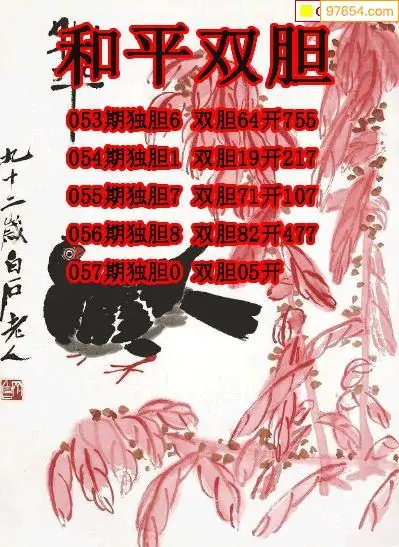 97654.com
和平双胆
053期独胆6 双胆64开755
054期独胆1 双胆19开217
055期独胆7 双胆71开107
056期独胆8 双胆82开477
057期独胆0 双胆05开
九十二岁白石老人